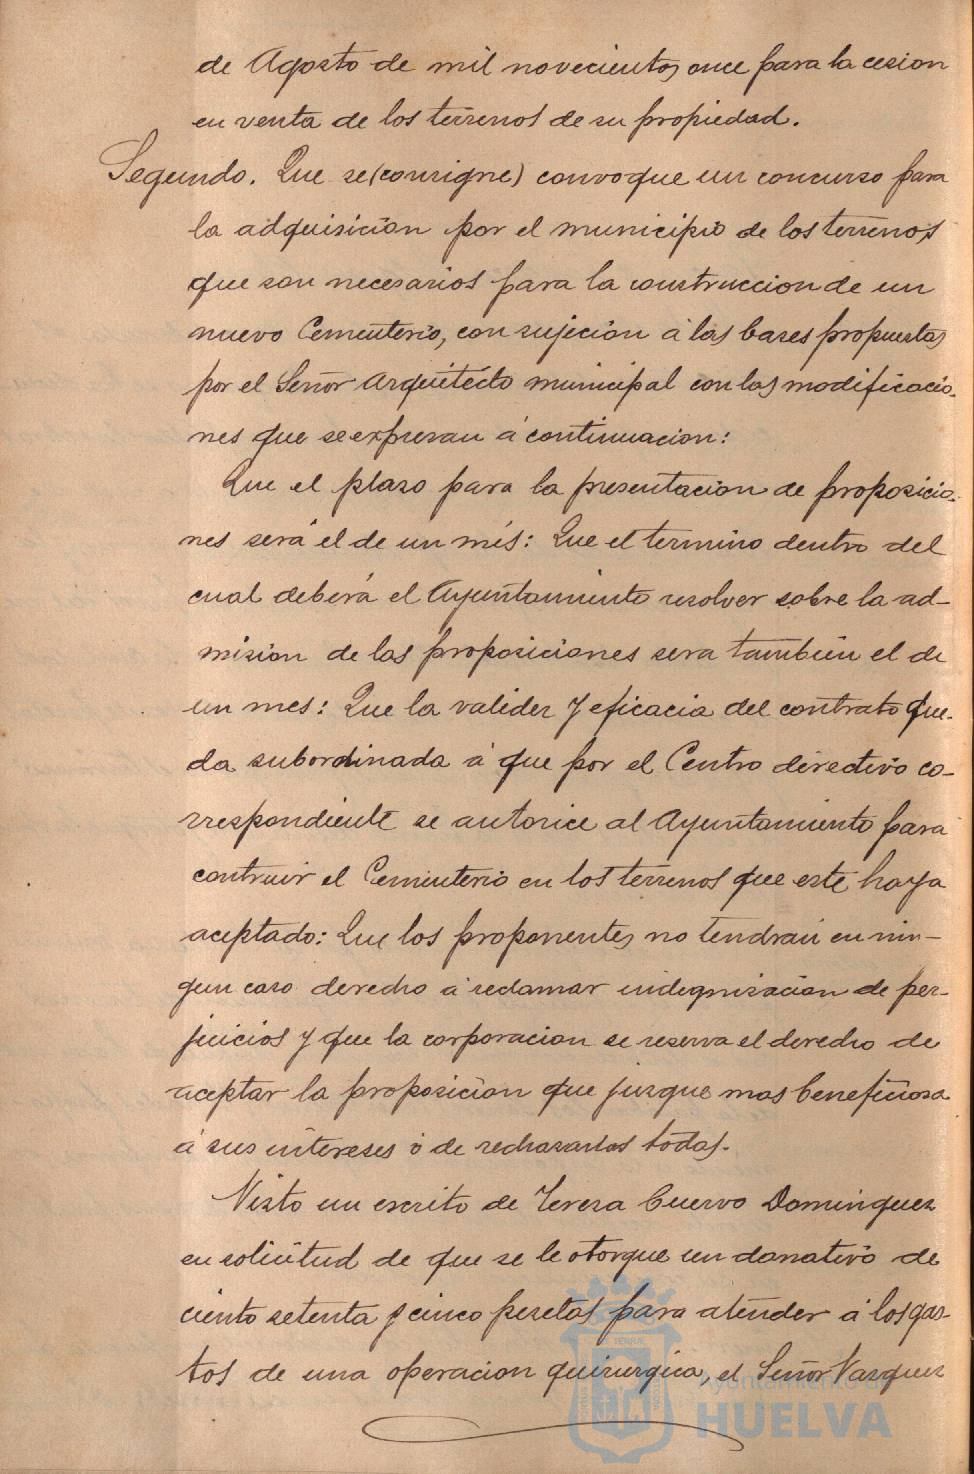 de Agosto de mil novecientos once para la cesion
en venta de los terrenos de su propiedad.
Segundo. Que se (consigne) convoque un concurso para
la adquisicion por el municipio de los terrenos
que son necesarios para la construccion de un
nuevo Cementerio, con sujecion á las bases propuestas
por el Señor Arquitecto municipal con las modificacio-
nes que se expresan á continuacion:
Que el plaso para la presentacion de proposicio-
nes será el de un més: Que el termino dentro del
cual deberá el Ayuntamiento resolver sobre la ad-
mision de las proposiciones sera tambien el de
un mes: Que la valider y eficacia del contrato que-
da subordinada á que por el Centro directivo co-
rrespondiente se autorice al Ayuntamiento para
contruir el Cementerio en los terrenos que este haya
aceptado: Que los proponentes no tendran en nin-
gun caso derecho á reclamar indegnisacion de per-
juicios y que la corporacion se reserva el derecho de
aceptar la proposicion que jusgue mas beneficiosa
á sus intereses ó de rechasarlas todas.
Visto un escrito de Teresa Cuervo Dominguez
en solicitud de que se le otorgue un donativo de
ciento setenta y cinco pesetas para atender á los gas-
tos de una operacion quirurgica, el Señor Vasquez
Ayuntamiento de
HUELVA